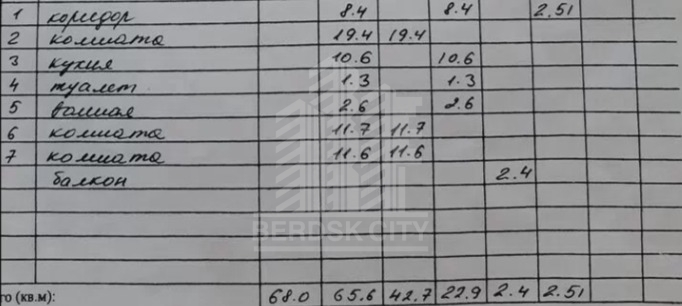 1 коридор 8.4 8.4 2.51
2 комната 19.4 19.4
3 кухня 10.6 10.6
4 туалет 1.3 1.3
5 ванная 2.6 2.6
6 комната 11.7 11.7
7 комната 11.6 11.6
балкон 2.4
BERDSK CITY
го (кв.м): 68.0 65.6 42.7 22.9 2.4 2.51